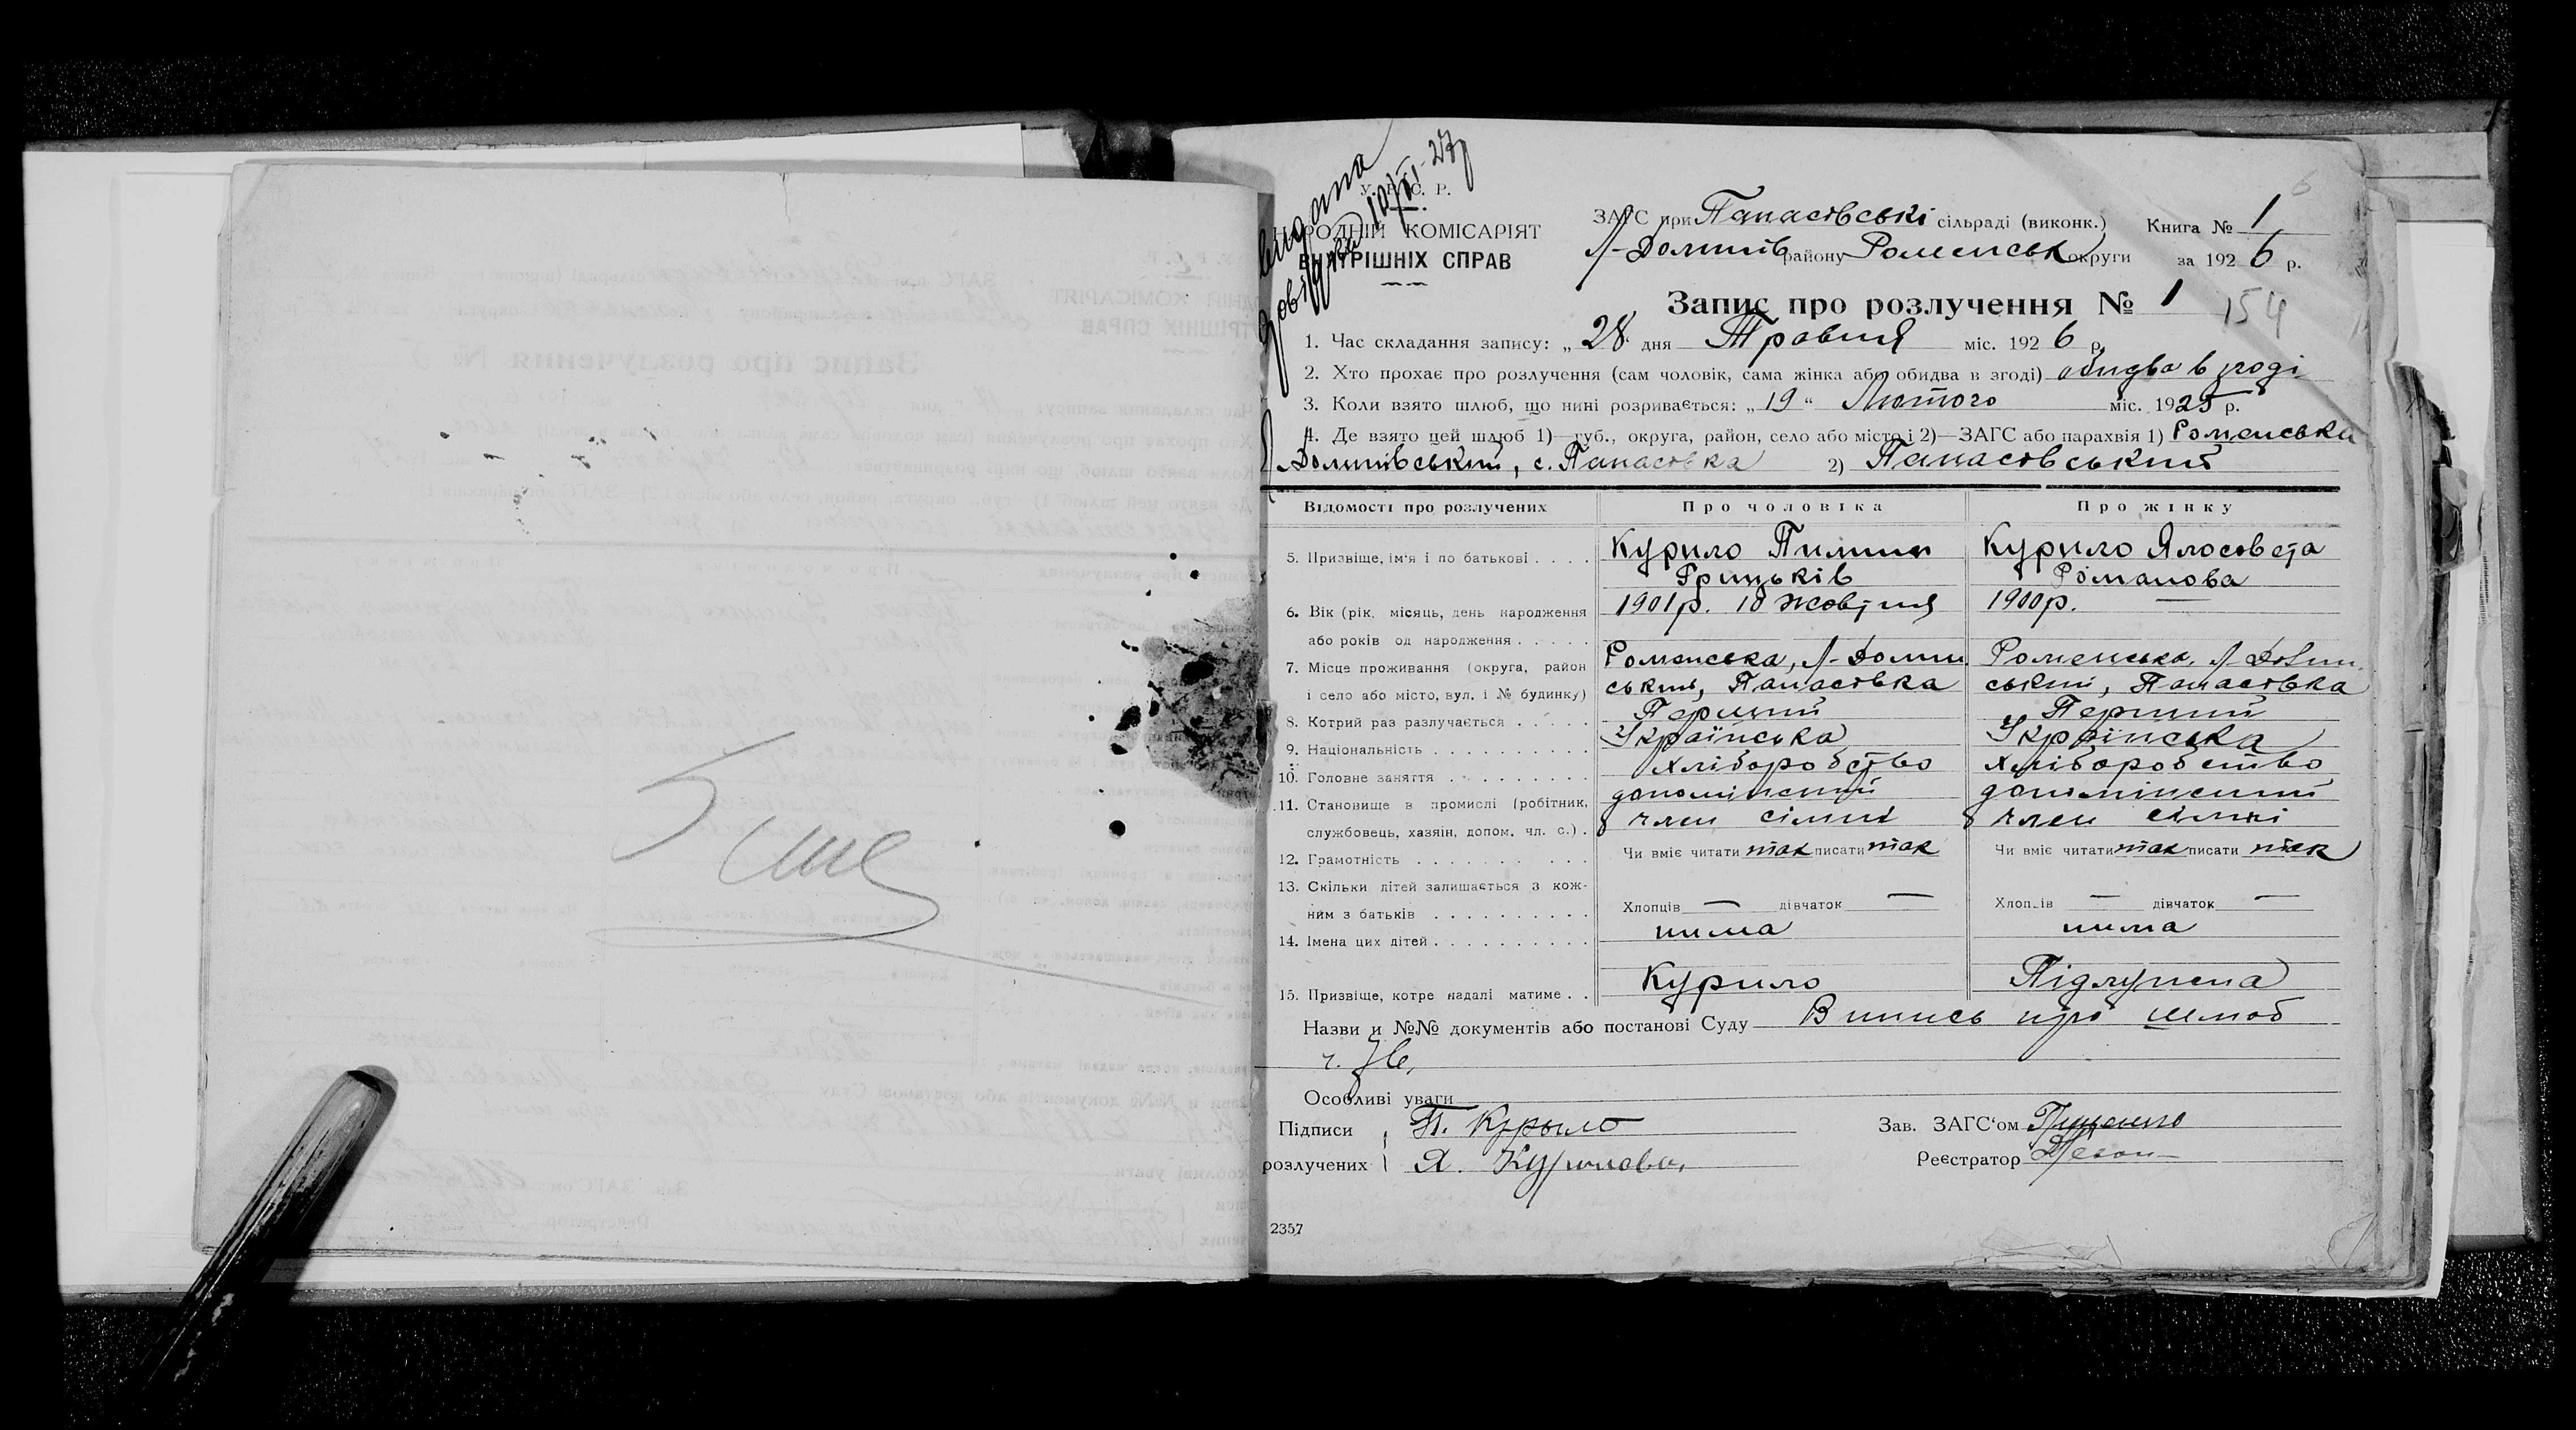 5 шл
видана
довідка 10/VI-27р
У. С. Р. Р.
НАРОДНІЙ КОМІСАРІЯТ
ВНУТРІШНІХ СПРАВ
ЗАГС при Панасівські сільраді (виконк.) Книга № 1
Л-Долинів району Роменськ округи за 1926 р.
6
Запис про розлучення № 1
154
1. Час складання запису: „28 дня Травня міс. 1926 р.
2. Хто прохає про розлучення (сам чоловік, сама жінка або обидва в згоді) обидва в згоді
3. Коли взято шлюб, що нині розривається: „19“ Лютого міс. 1925 р.
4. Де взято цей шлюб 1)—губ., округа, район, село або місто і 2)—ЗАГС або парахвія 1) Роменська
Долинівський, с. Панасівка 2) Панасівський
Відомості про розлучених Про чоловіка Про жінку
5. Призвіще, ім'я і по батькові . . . . Курило Пилип Курило Ялосовета
Грицьків Романова
6. Вік (рік, місяць, день народження 1901р. 10 жовтня 1900р. —
або років од народження . . . . .
7. Місце проживання (округа, район Роменська, Л-Долин Роменська, Л-Долин
і село або місто, вул. і № будинку) ський, Панасівка ський, Панасівка
8. Котрий раз разлучається . . . . . Перший Перший
9. Національність . . . . . . . . . . Українська Українська
10. Головне заняття . . . . . . . . . хліборобство хліборобство
11. Становище в промислі (робітник, допоміжний допоміжний
службовець, хазяін, допом. чл. с.) . член сімні член сімні
12. Грамотність . . . . . . . . . . Чи вміє читати так писати так Чи вміє читати так писати так
13. Скільки дітей залишається з кож-
ним з батьків . . . . . . . . . . Хлопців — дівчаток — Хлопців — дівчаток —
14. Імена цих дітей . . . . . . . . . . нима нима
15. Призвіще, котре надалі матиме . . Курило Підлупена
Назви и №№ документів або постанові Суду Випись про шлюб
ч. 76.
Особливі уваги
Підписи П. Курыло Зав. ЗАГС‘ом
розлучених Я. Курилова. Реєстратор
2357